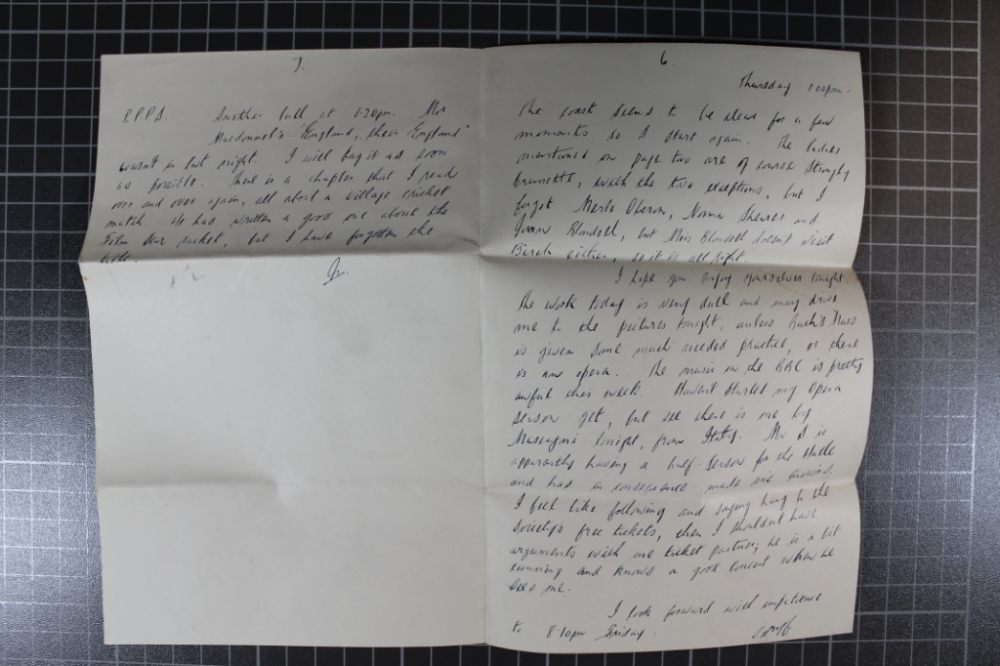 6.
Thursday 1.00pm.
The coast seems to be clear for a few
moments so I start again. The ladies
mentioned on page two are of course strongly
brunette, with the two exceptions, but I
forgot Merle Oberon, Norma Shearer and
Joan Blondell, but Miss Blondell doesn't visit
Birch either, so it is all right.
I hope you enjoy yourselves tonight.
The work today is very dull and may drive
me to the pictures tonight, unless Bach's Mass
is given some much needed practice, or there
is an opera. The music on the BBC is pretty
awful this week. Haven't started my Opera
season yet, but see there is one by
Mascagni tonight, from Italy. Mr S is
apparently having a half-season for the Halle
and has in consequence made me envious,
I feel like following and saying hang to the
Society's free tickets, then I shouldn't have
arguments with me ticket partner, he is a bit
cunning and knows a good concert when he
sees one.
I look forward with impatience
to 8-10pm Friday.
7.
P.P.P.S. Another lull at 1-20pm. Mr
Macdonnel's "England, their England"
wasn't in last night. I will bag it as soon
as possible. There is a chapter that I read
over and over again, all about a village cricket
match. He has written a good one about the
Film Star racket, but I have forgotten the
title.